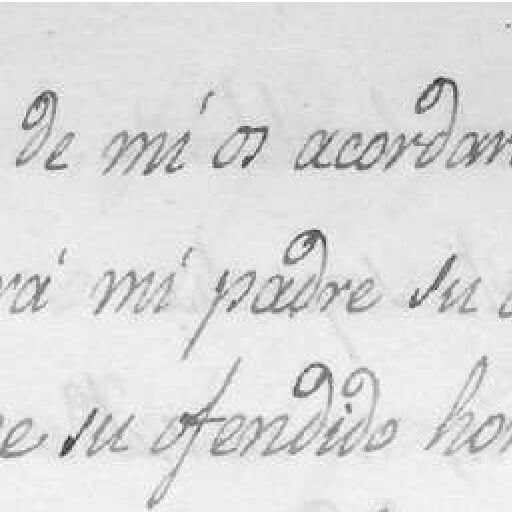 de mí os acordar
rá mi padre su
e su ofendido hon